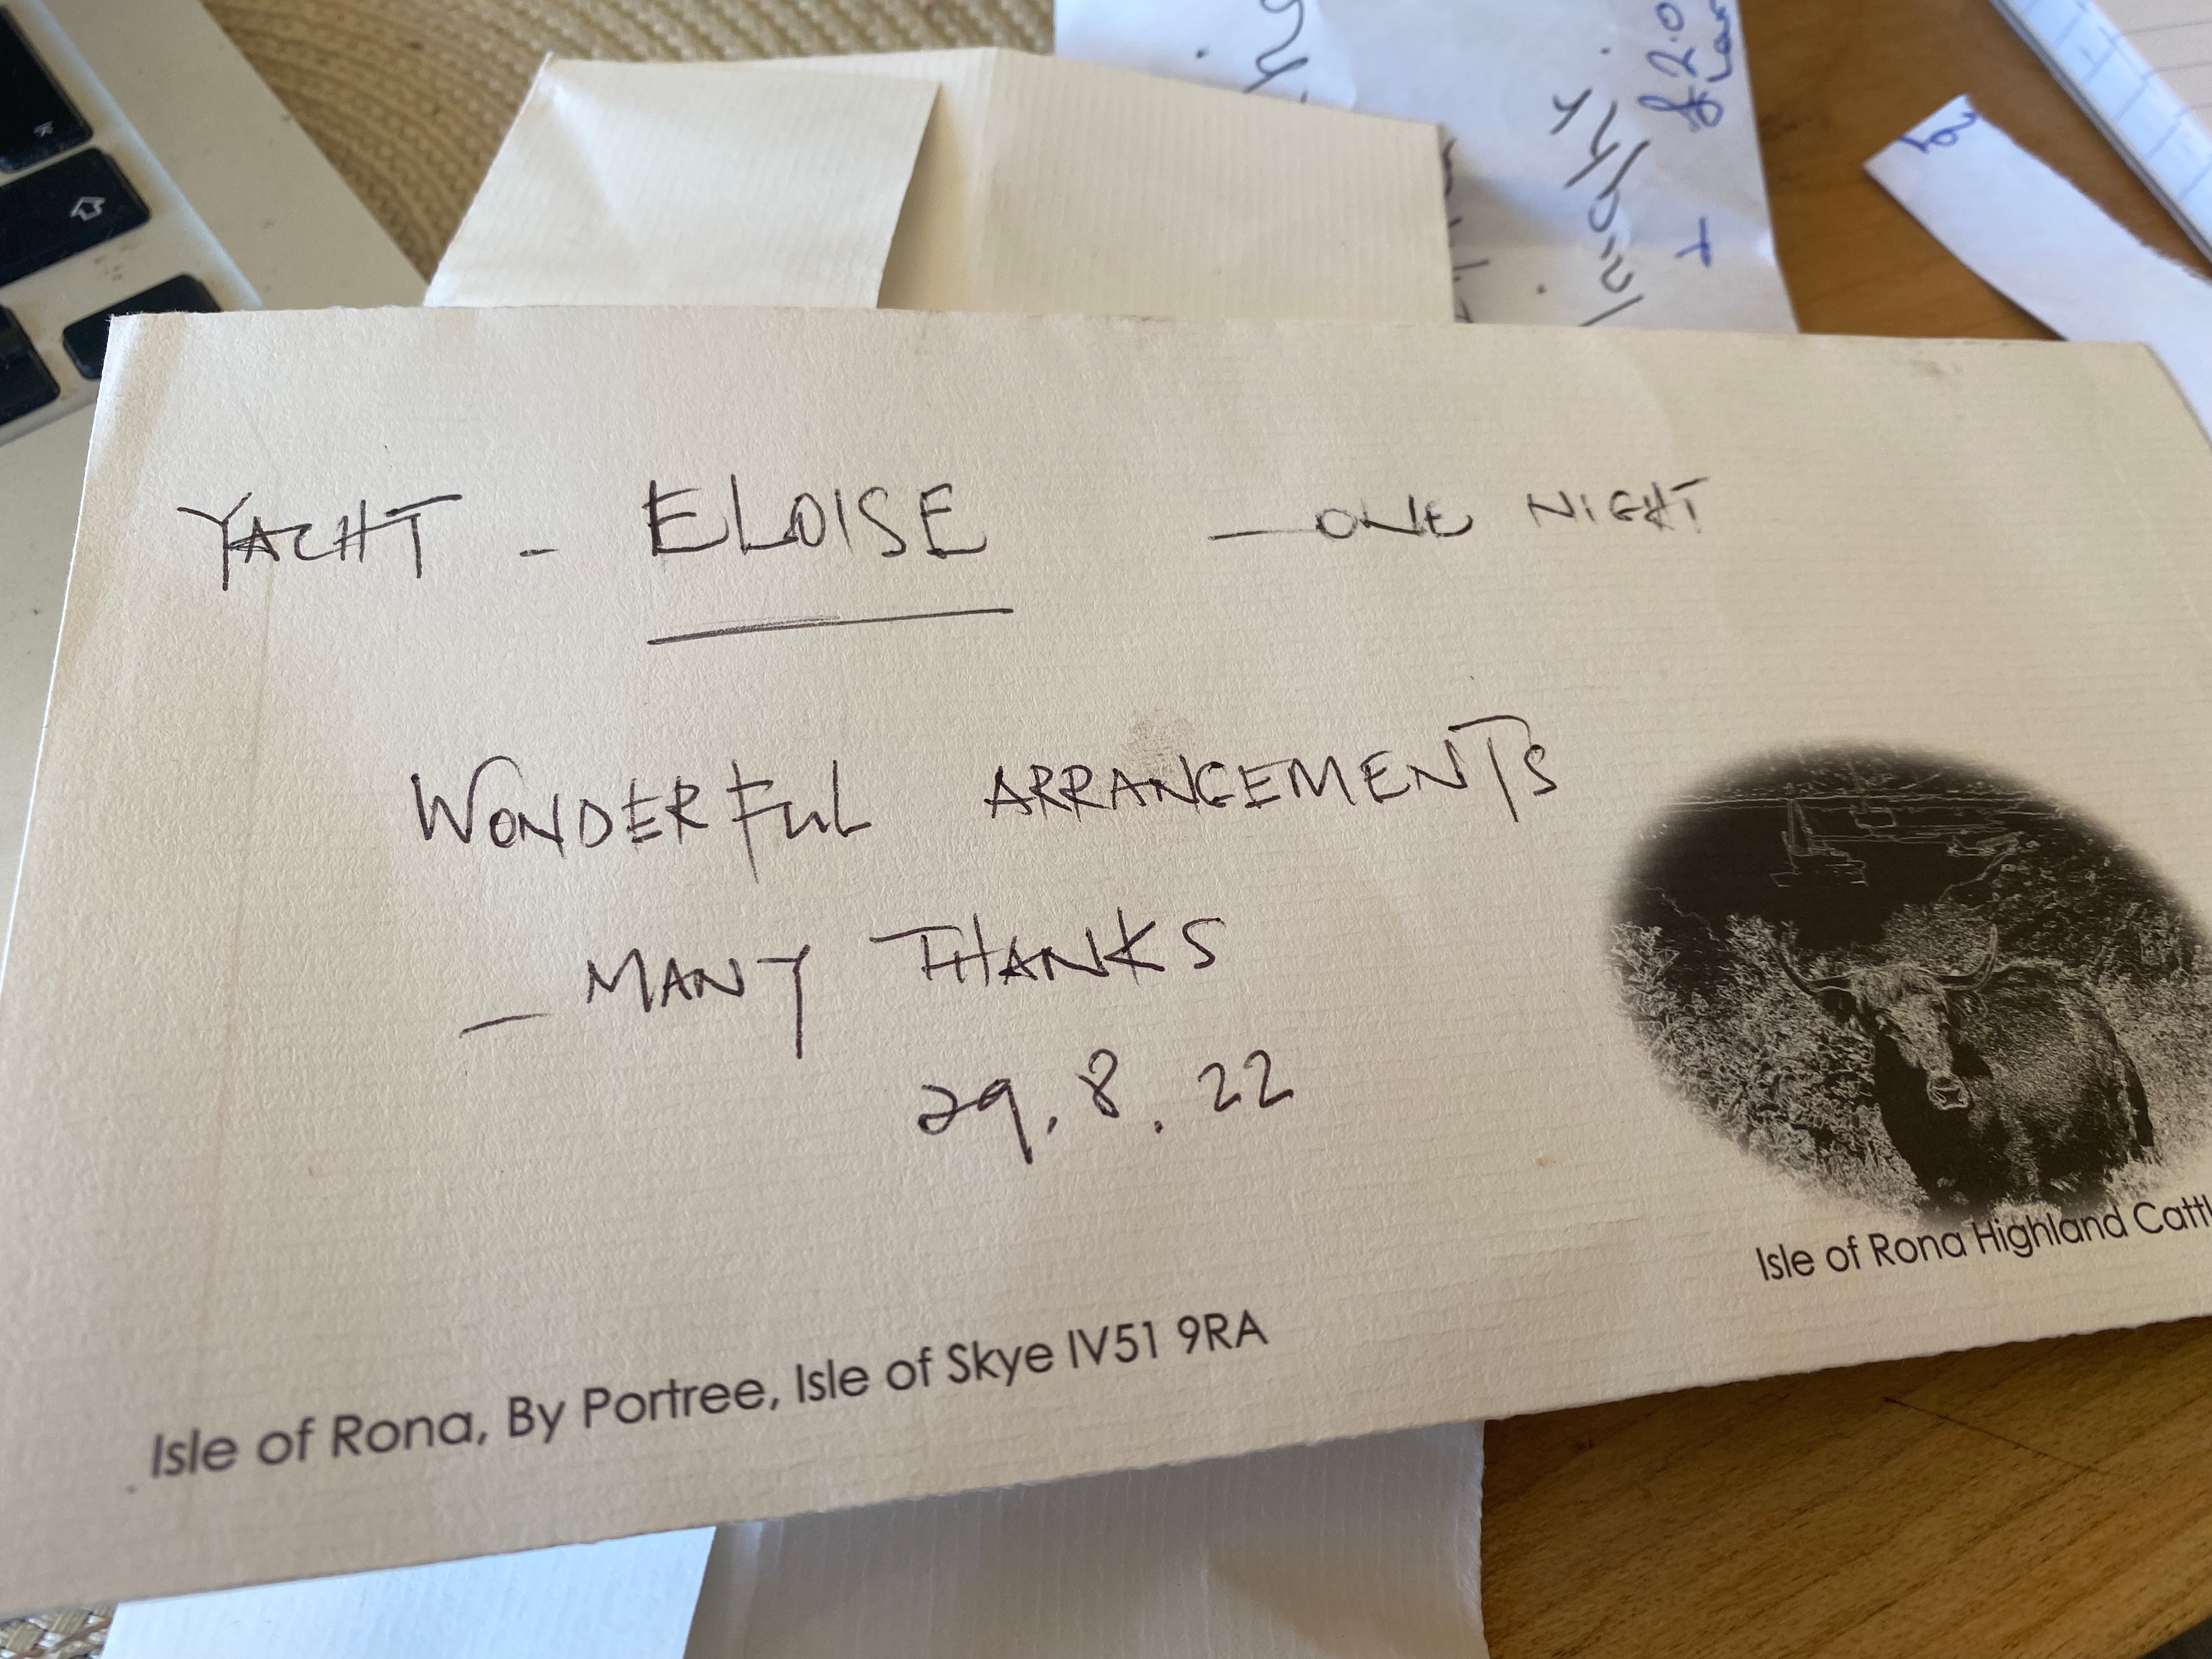 YACHT - ELOISE - ONE NIGHT
WONDERFUL ARRANGEMENTS
- MANY THANKS
29.8.22
Isle of Rona Highland Cattl
Isle of Rona, By Portree, Isle of Skye IV51 9RA